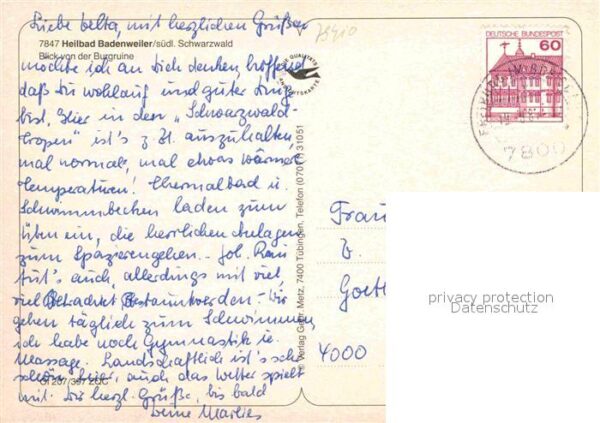 Liebe belta, mit herzlichen Grüßen
7847 Heilbad Badenweiler/südl. Schwarzwald
Blick von der Burgruine
möchte ich an dich denken, hoffend
daß du wohlauf und guter Dinge
bist. Hier in den "Schwarzwald-
tropen" ist's z. Zt. auszuhalten,
mal normale, mal etwas wärmere
Temperaturen! Thermalbad u.
Schwimmbecken laden zum
üben ein, die herrlichen Anlagen
zum Spazierengehen. - Joh.
tut's auch, allerdings mit viel,
viel Wir
gehen täglich zum Schwimmen,
ich habe noch Gymnastik u.
Massage. Landschaftlich ist's sehr
schön hier, auch das Wetter spielt
mit. Dir herzl. Grüße, bis bald
Deine Marlies
79410
DIE QUALITÄTS
ANSICHTSKARTE
Verlag Gebr. Metz, 7400 Tübingen, Telefon (07071) 31051
DEUTSCHE BUNDESPOST
60
FREIBURG IM BREISGAU
7800
Frau
Goeth
4000
privacy protection
Datenschutz